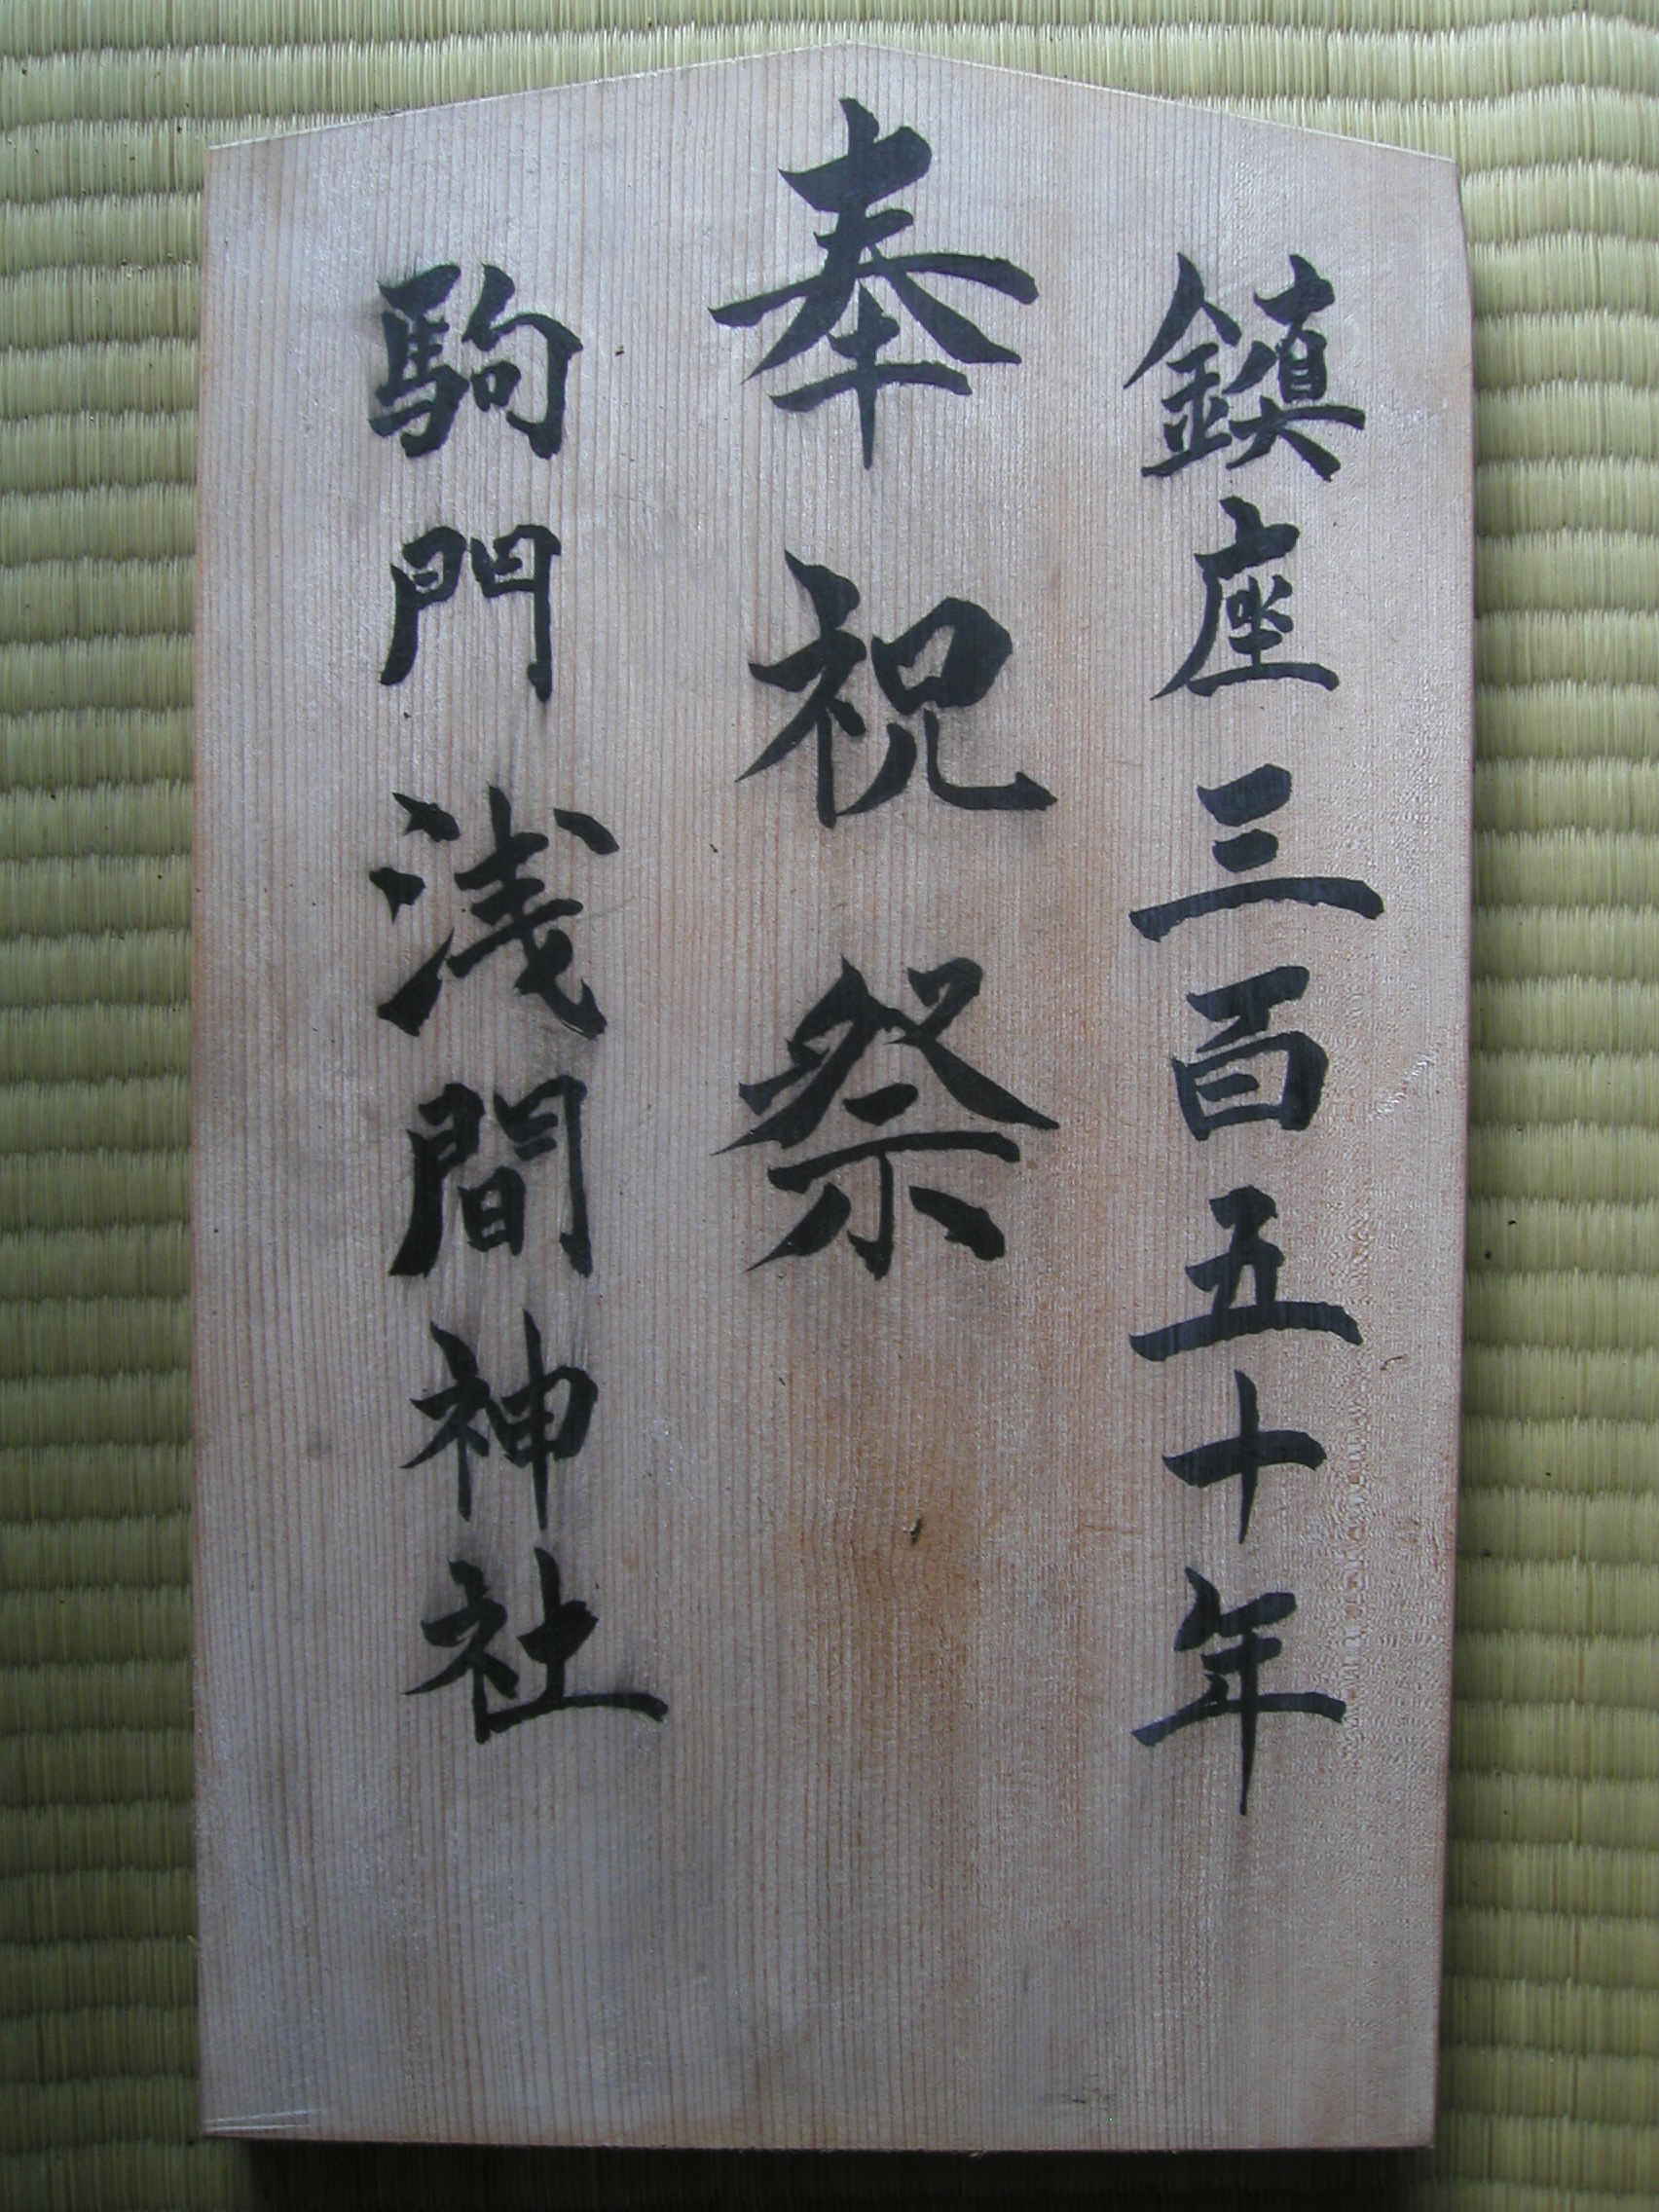 鎮座三百五十年
奉祝祭
駒門浅間神社